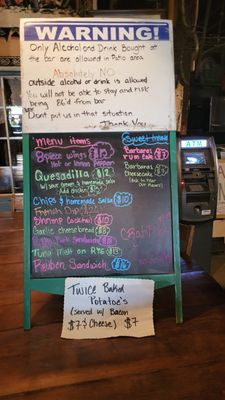 WARNING!
Only Alcohol and Drink Bought at
the bar are allowed in Patio area
Absolutely NO
outside alcohol or drink is allowed
You will not be able to stay and risk
being 86'd from bar
Dont put us in that situation
Thank You
Menu Items
8 piece wings $15
Hot or Lemon Pepper
Quesadilla $12
w/ sour cream & homemade salsa
Add chicken
Chips & homemade salsa $10
French Dip
Shrimp Cocktail $10
Garlic cheesebread $8
Pork Sandwich
Tuna Melt on RYE $13
Reuben Sandwich $16
Sweet treats
Barbaras
rum cake
Barbaras
Cheesecake
ATM
Twice Baked
Potatoe's
(served w/ Bacon
& Cheese) $7
$7